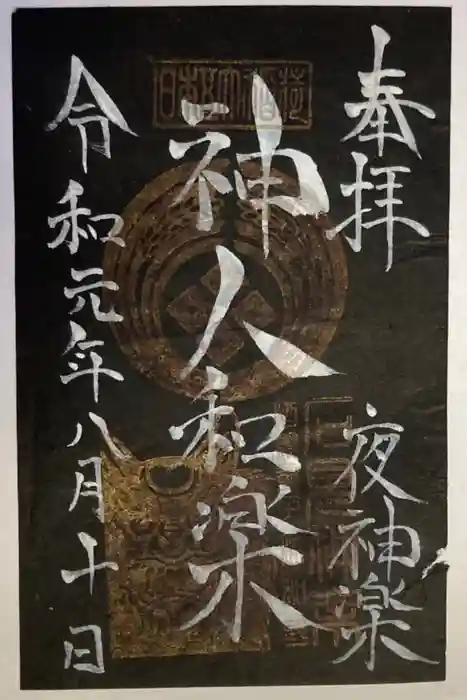 奉拝
夜神楽
日本五大稲荷
神人和楽
令和元年八月十日